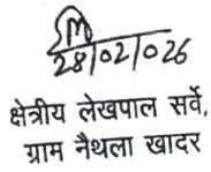 28/02/026
क्षेत्रीय लेखपाल सर्वे,
ग्राम नैथला खादर